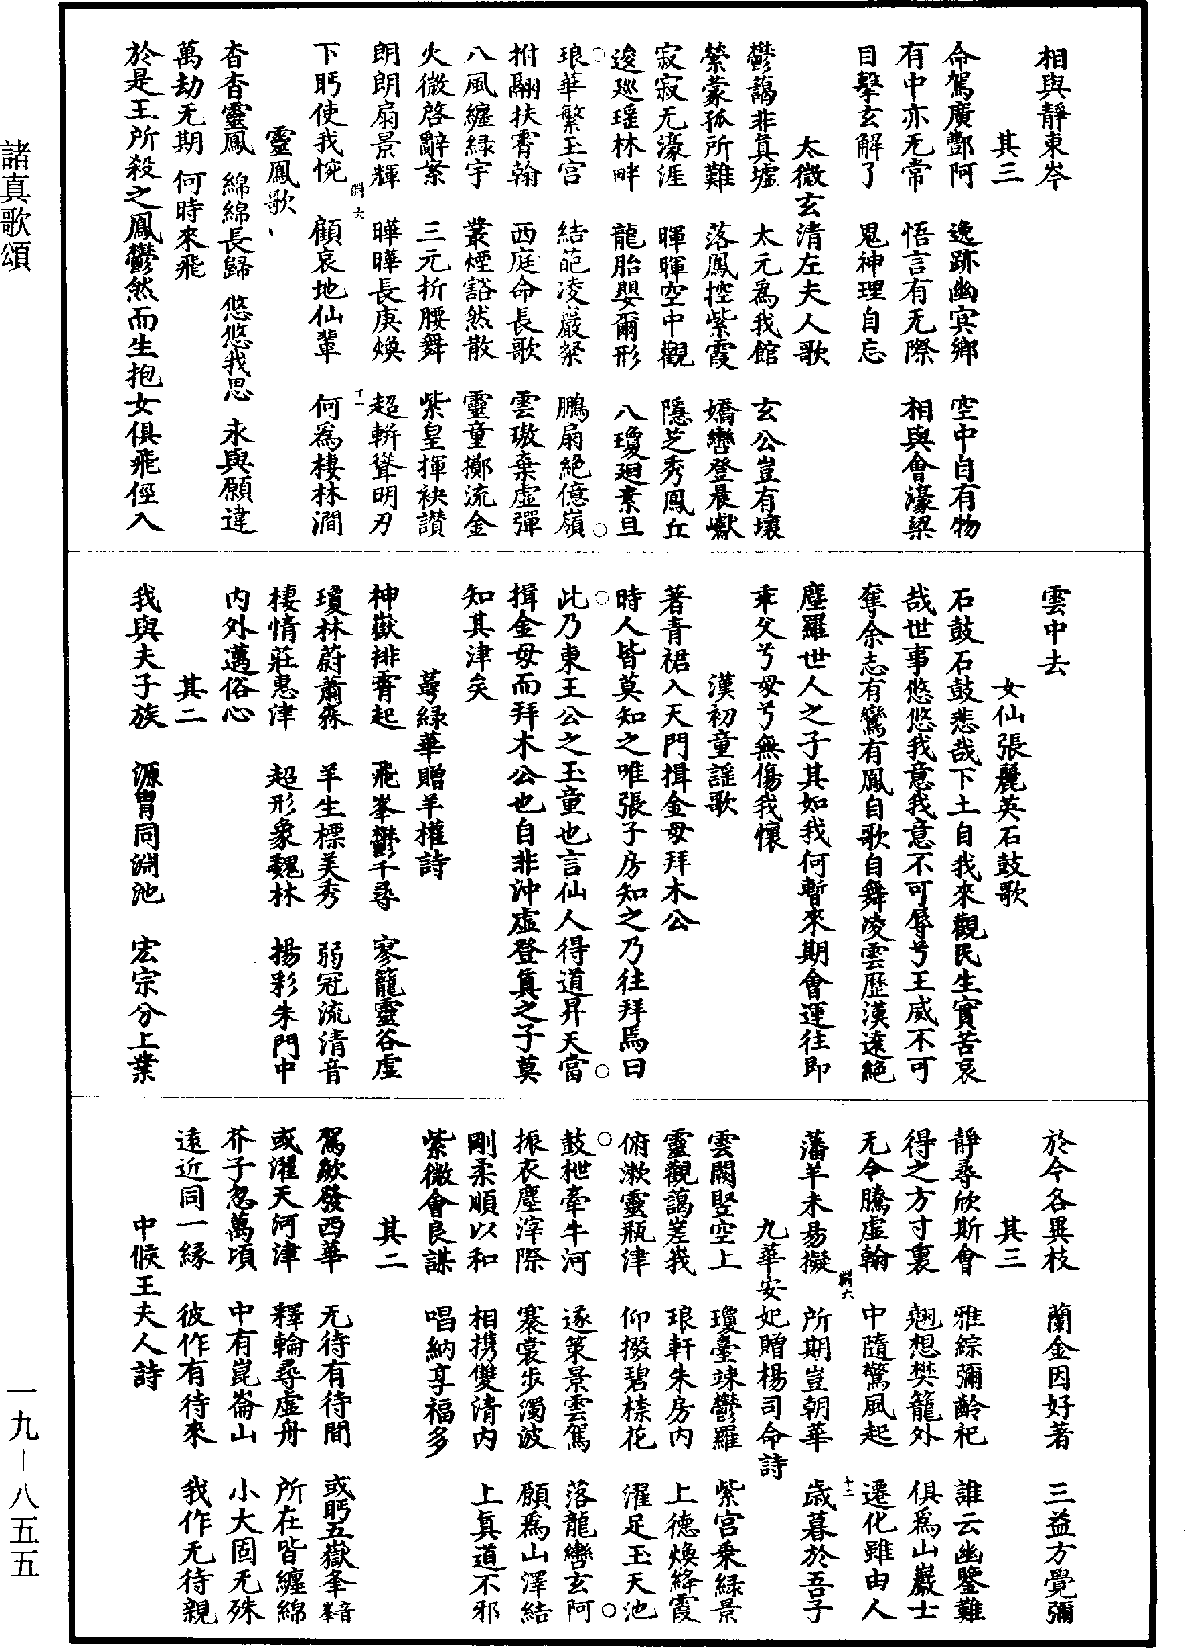 相與靜東岑
其三
命駕廣酆阿　逸跡幽冥鄉　空中自有物
有中亦无常　悟言有无際　相與會濠梁
目擊玄解了　鬼神理自忘
太微玄清左夫人歌
鬱藹非真墟　太元為我館　玄公豈有壞
縈蒙孤所難　落鳳控紫霞　嬌轡登晨巘
寂寂无濠涯　暉暉空中觀　隱芝秀鳳丘
逡廵瑶林畔　龍胎嬰爾形　八瓊廻素旦
琅華繁玉宮　結葩凌巖粲　鵬扇絕億嶺
拊翮扶霄翰　西庭命長歌　雲璈乘虛彈
八風纏綠宇　叢煙豁然散　靈童擲流金
火微啓辭案　三元折腰舞　紫皇揮袂讚
朗朗扇景輝　曄曄長庚煥　超軿聳明刃
下眄使我惋　顧哀地仙輩　何為棲林澗
靈鳳歌
杳杳靈鳳　綿綿長歸　悠悠我思　永與願違
萬劫无期　何時來飛
於是王所殺之鳳鬱然而生抱女俱飛徑入
雲中去
女仙張麗英石鼓歌
石鼓石鼓悲哉下土自我來觀民生實苦哀
哉世事悠悠我意我意不可辱兮王威不可
奪余志有鸞有鳳自歌自舞凌雲歷漢遠絕
塵羅世人之子其如我何暫來期會運往即
乖父兮母兮無傷我懷
漢初童謡歌
著青裙入天門揖金母拜木公
時人皆莫知之唯張子房知之乃往拜焉曰
此乃東王公之玉童也言仙人得道昇天當
揖金母而拜木公也自非沖虛登真之子莫
知其津矣
萼綠華贈羊權詩
神嶽排霄起　飛峯鬱千尋　寥籠靈谷虛
瓊林蔚蕭森　羊生標美秀　弱冠流清音
棲情莊惠津　超形象魏林　揚彩朱門中
内外邁俗心
其二
我與夫子族　源冑同淵池　宏宗分上業
於今各異枝　蘭金因好著　三益方覺彌
其三
靜尋欣斯會　雅綜彌齡祀　誰云幽鑒難
得之方寸裏　翹想樊籠外　俱為山巖士
无令騰虛翰　中隨驚風起　遷化雖由人
藩羊未易擬　所期豈朝華　歲暮於吾子
九華安妃贈楊司命詩
雲闕竪空上　瓊臺竦鬱羅　紫宮乘綠景
靈觀藹嵳峩　琅軒朱房内　上德煥絳霞
俯漱靈瓶津　仰掇碧㮈花　濯足玉天池
鼓枻牽牛河　遂策景雲駕　落龍轡玄阿
振衣塵滓際　褰裳步濁波　願為山澤結
剛柔順以和　相携雙清内　上真道不邪
紫微會良謀　唱納享福多
其二
駕欻發西華　无待有待間　或眄五嶽峯音峯
或濯天河津　釋輪尋虛舟　所在皆纏綿
芥子忽萬頃　中有崑崙山　小大固无殊
遠近同一緣　彼作有待來　我作无待親
中候王夫人詩
諸真歌頌
一九－八五五